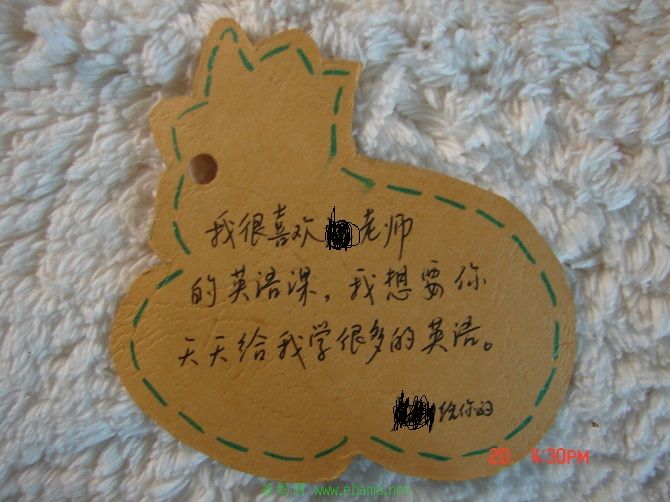 我很喜欢老师
的英语课，我想要你
天天给我学很多的英语。
给你的
20 4:30PM
www.ebama.net